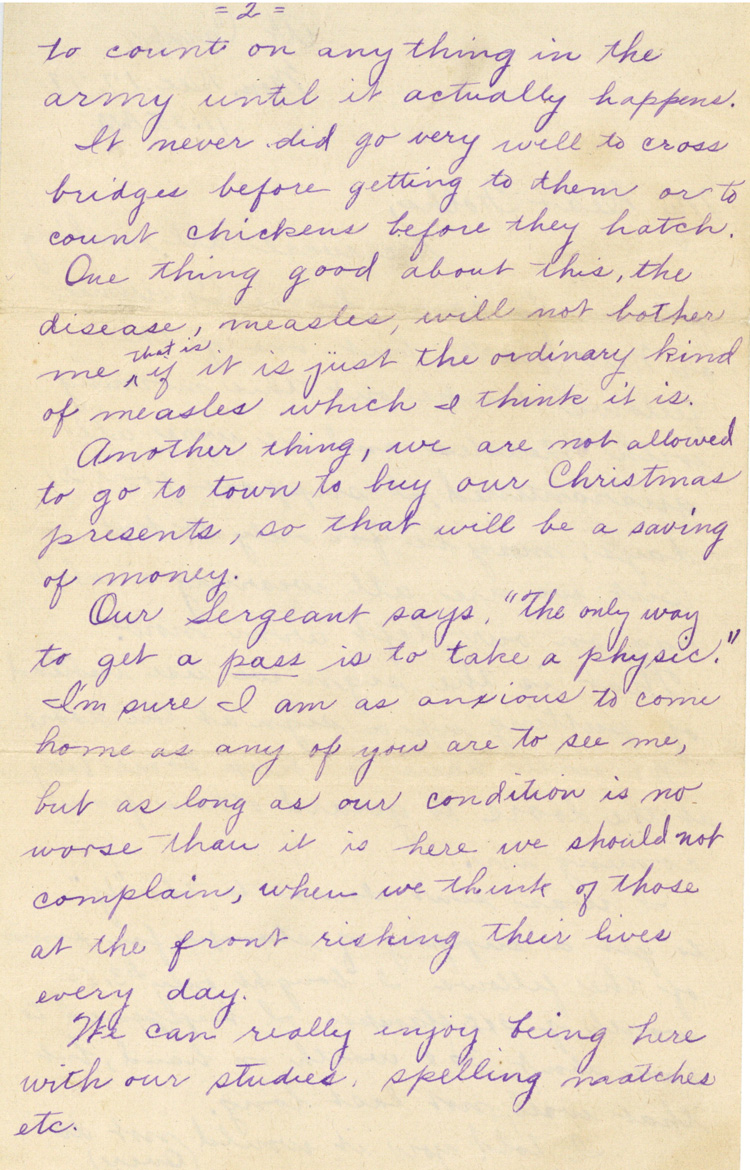 = 2 =
to count on anything in the
army until it actually happens.
It never did go very well to cross
bridges before getting to them or to
count chickens before they hatch.
One thing good about this, the
disease, measles, will not bother
me ^ that is if it is just the ordinary kind
of measles which I think it is.
Another thing, we are not allowed
to go to town to buy our Christmas
presents, so that will be a saving
of money.
Our Sergeant says, "The only way
to get a pass is to take a physic."
I'm sure I am as anxious to come
home as any of you are to see me,
but as long as our condition is no
worse than it is here we should not
complain, when we think of those
at the front risking their lives
every day.
We can really enjoy being here
with our studies, spelling maatches
etc.